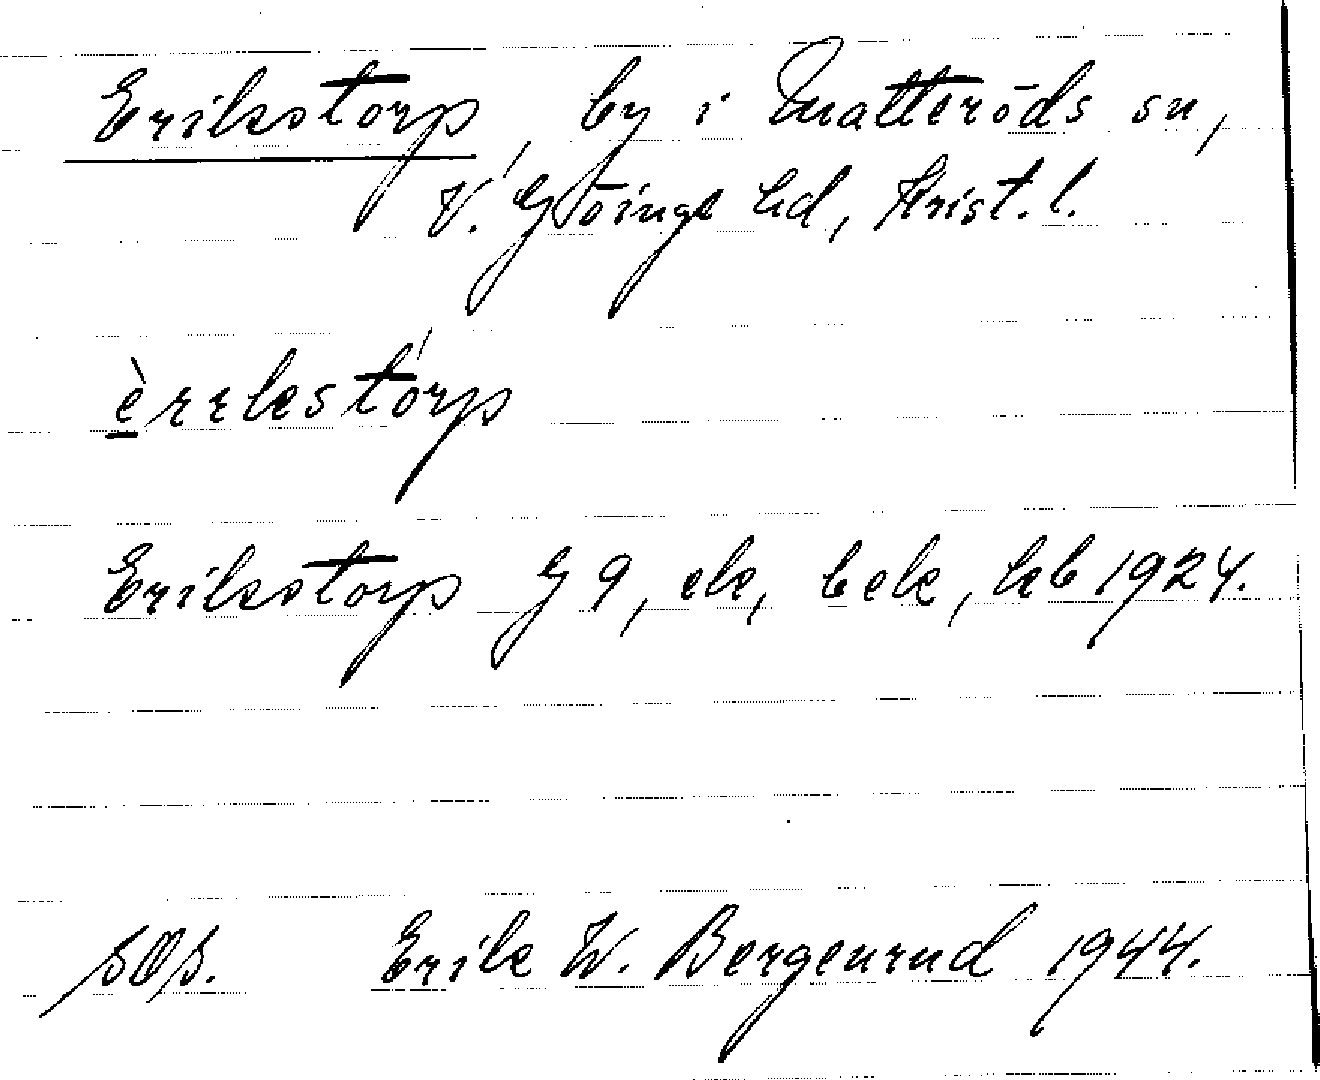 Erikstorp, by i Matteröds sn,
V. Göinge hd, Krist. l.
èrrkestórp
Erikstorp G 9, ek, bek, hb 1924.
SOS. Erik W. Bergenrud 1944.